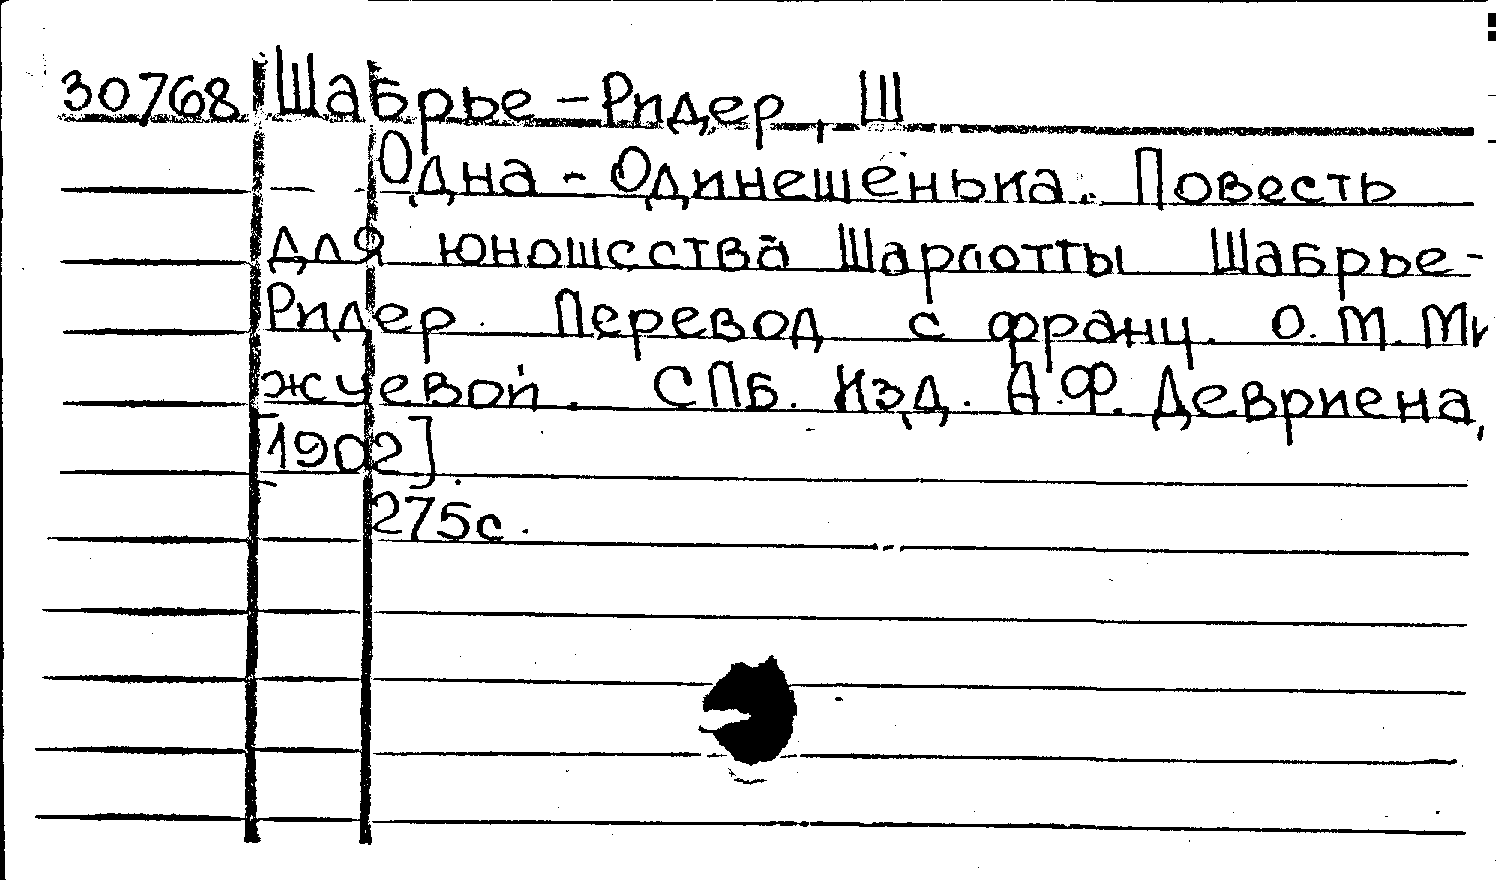 30768 Шабрье-Ридер, Ш
Одна-Одинешенька. Повесть
для юношества Шарлотты Шабрье-
Ридер. Перевод с франц. О. М. Ми
жуевой. СПб. Изд. А.Ф. Девриена,
[1902].
275с.